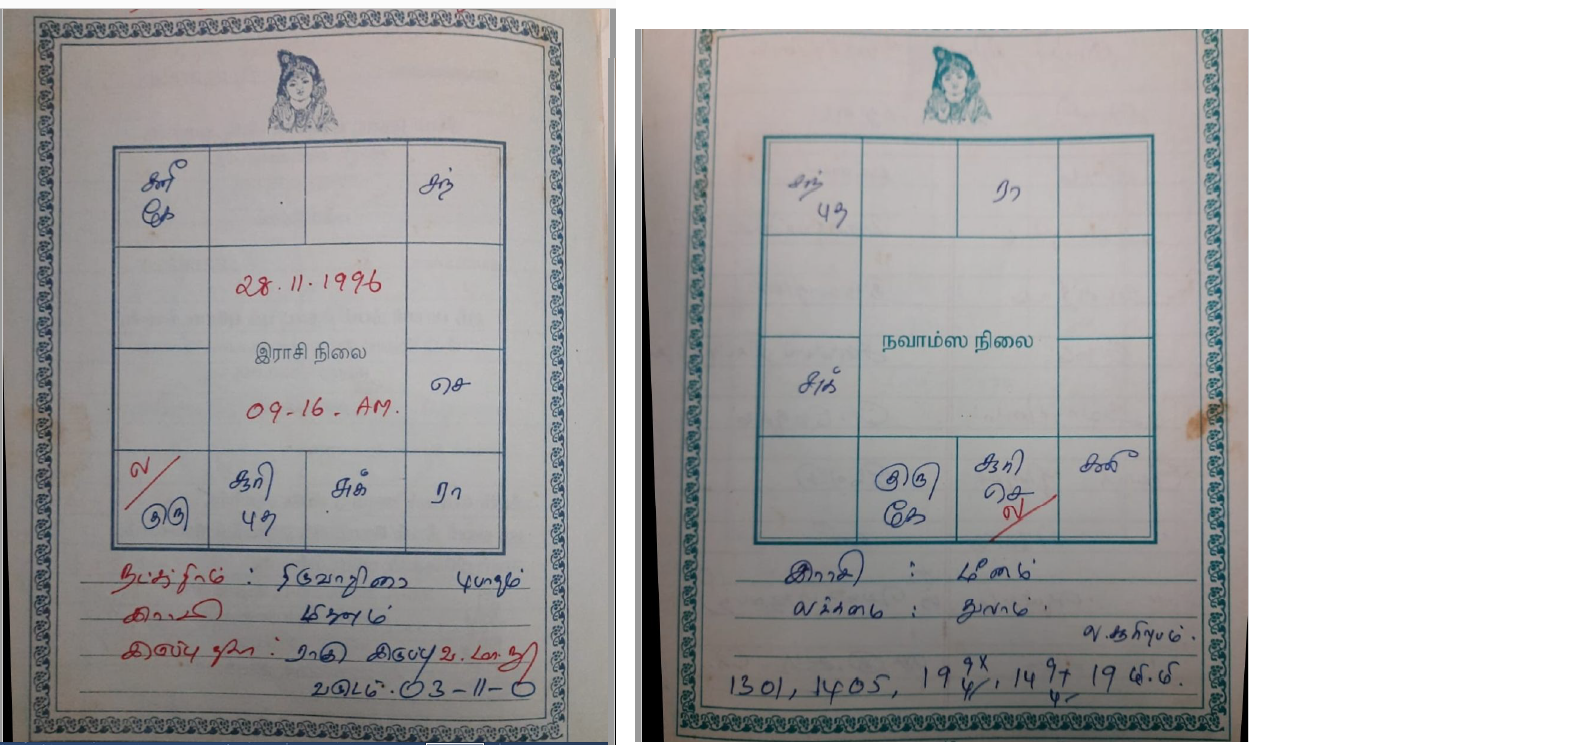 சனி
கே
சந்
28.11.1996
இராசி நிலை
09-16 - AM.
செ
ல
குரு
சூரி
புத
சுக்
ரா
நட்சத்திரம் : திருவாதிரை 4 பாதம்
இராசி மிதுனம்
இருப்பு திசை : ராகு இருப்பு வ. மா. நா
வருடம். 03-11-0
சந்
புத
ரா
நவாம்ஸ நிலை
சுக்
குரு
கே
சூரி
செ
ல
சனி
இராசி : மீனம்
லக்கனம் : துலாம்.
1301, 1405, 19 14 19 மி.மி.